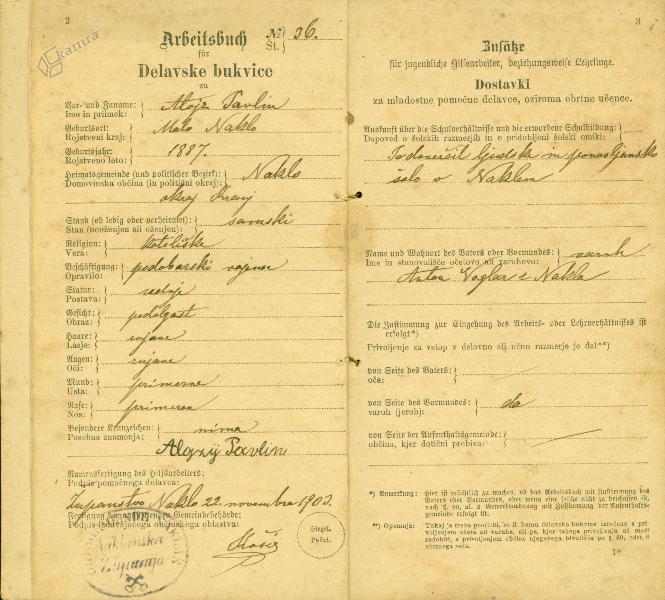 2
kamra
Arbeitsbuch № 36.
für Št.
Delavske bukvice
za
Vor- und Zuname: Alojz Pavlin
Ime in priimek:
Geburtsort: Malo Naklo
Rojstveni kraj:
Geburtsjahr: 1887.
Rojstveno leto:
Heimatsgemeinde (und politischer Bezirk): Naklo
Domovinska občina (in politični okraj):
okraj Kranj
Stand (ob ledig oder verheiratet): samski
Stan (neoženjen ali oženjen):
Religion: katoliške
Vera:
Beschäftigung: podobarski
Opravilo:
Statur: srednje
Postava:
Gesicht: podolgast
Obraz:
Haare: rujave
Lasje:
Augen: rujave
Oči:
Mund: primerne
Usta:
Nase: primeren
Nos:
Besondere Kennzeichen: nima
Posebna znamenja:
Alojzij Pavlin
Namensfertigung des Hilfsarbeiters:
Podpis pomočnega delavca:
Županstvo Naklo 22. novembra 1902.
Fertigung der ausfertigenden Gemeindebehörde:
Podpis izdatnega občinskega oblastva:
Siegel.
Pečat.
Naklanska
županija
3
Zusätze
für jugendliche Hilfsarbeiter, beziehungsweise Lehrlinge.
Dostavki
za mladostne pomočne delavce, oziroma obrtne učence.
Auskunft über die Schulverhältnisse und die erworbene Schulbildung:
Dopoved o šolskih razmerjih in o pridobljeni šolski omiki:
Je dovršil ljudsko in ponavljavsko
šolo v Naklem
Name und Wohnort des Vaters oder Vormundes: varuh
Ime in stanovališče očetovo ali varuhovo:
Anton Voglar z Nakla
Die Zustimmung zur Eingehung des Arbeits- oder Lehrverhältnisses ist
erfolgt*)
Privoljenje za vstop v delovno ali učno razmerje je dal**)
von Seite des Vaters:
oče:
von Seite des Vormundes: da
varuh (jerob):
von Seite der Aufenthaltsgemeinde:
občina, kjer dotični prebiva:
*) Anmerkung: Hier ist ersichtlich zu machen, ob das Arbeitsbuch mit Zustimmung des
Vaters oder Vormundes, oder wenn eine solche nicht zu beschaffen ist,
nach § 80, al. 2 Gewerbeordnung mit Zustimmung der Aufenthalts-
gemeinde erfolgt ist.
**) Opomnja: Takaj je treba pročititi, so li komu delavske bukvice izročene s pri-
voljenjem očeta ali varuha, ali pa, kjer takega privoljenja ni moči
zadobiti, s privoljenjem občine njegovega bivališča po § 80, odst. 2
obrtnega reda.
1*